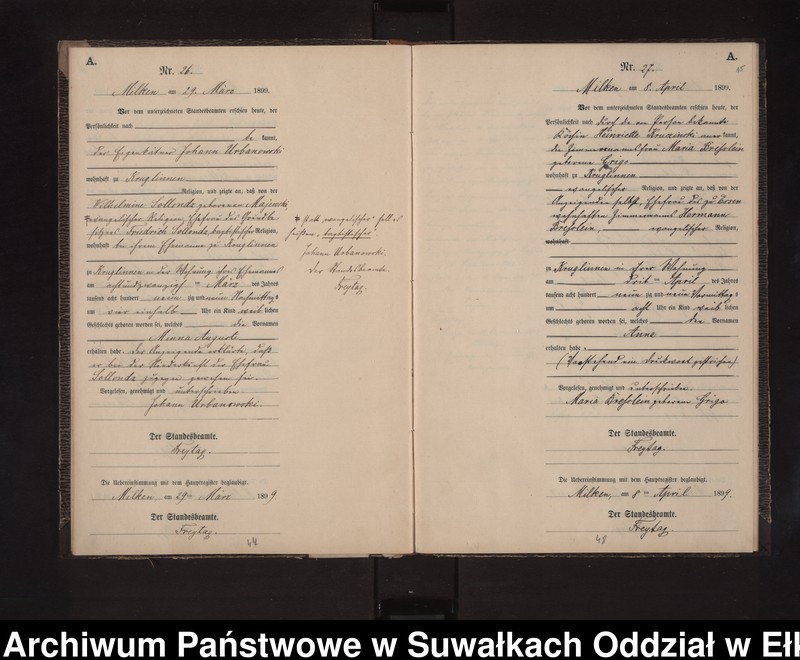 A.
Nr. 26.
Milken am 29. März 1899.
Vor dem unterzeichneten Standesbeamten erschien heute, der
Persönlichkeit nach
be kannt,
der Eigenkätner Johann Urbanowski
wohnhaft zu Kruglinnen
Religion, und zeigte an, daß von der
Wilhelmine Sollonde geborenen Majewski
evangelischer Religion, Ehefrau des Grundbe-
sitzers Friedrich Sollonde, baptistischer Religion,
wohnhaft bei ihrem Ehemanne zu Kruglinnen
zu Kruglinnen in der Wohnung ihres Ehemannes
am achtundzwanzigsten März des Jahres
tausend acht hundert neunzig und neun Nachmittags
um vier einhalb Uhr ein Kind weiblichen
Geschlechts geboren worden sei, welches die Vornamen
Minna Auguste
erhalten habe. Der Anzeigende erklärte, daß
er bei der Niederkunft der Ehefrau
Sollonde zugegen gewesen sei.
Vorgelesen, genehmigt und unterschrieben
Johann Urbanowski.
Der Standesbeamte.
Freytag.
Die Uebereinstimmung mit dem Hauptregister beglaubigt.
Milken, am 29ten März 1899
Der Standesbeamte.
Freytag.
64
Statt „evangelischer" soll es
heißen „baptistischer"
Johann Urbanowski.
Der Standesbeamte.
Freytag.
A.
15
Nr. 27.
Milken am 8. April 1899.
Vor dem unterzeichneten Standesbeamten erschien heute, der
Persönlichkeit nach durch die an Person bekannte
Köchin Heinriette anerkannt,
die Zimmermannsfrau Maria Breßlein
geborene Griga
wohnhaft zu Kruglinnen
evangelischer Religion, und zeigte an, daß von der
Anzeigenden selbst, Ehefrau des zu
wohnhaften Zimmermanns Hermann
Breßlein, evangelischer Religion,
wohnhaft
zu Kruglinnen in ihrer Wohnung
am April des Jahres
tausend acht hundert neunzig und neun Vormittags
um acht Uhr ein Kind weiblichen
Geschlechts geboren worden sei, welches den Vornamen
Anna
erhalten habe.
(Vorstehend ein Druckwort gestrichen)
Vorgelesen, genehmigt und unterschrieben
Maria Breßlein geborene Griga
Der Standesbeamte.
Freytag.
Die Uebereinstimmung mit dem Hauptregister beglaubigt.
Milken, am 8ten April 1899.
Der Standesbeamte.
Freytag.
Archiwum Państwowe w Suwałkach Oddział w Ełk